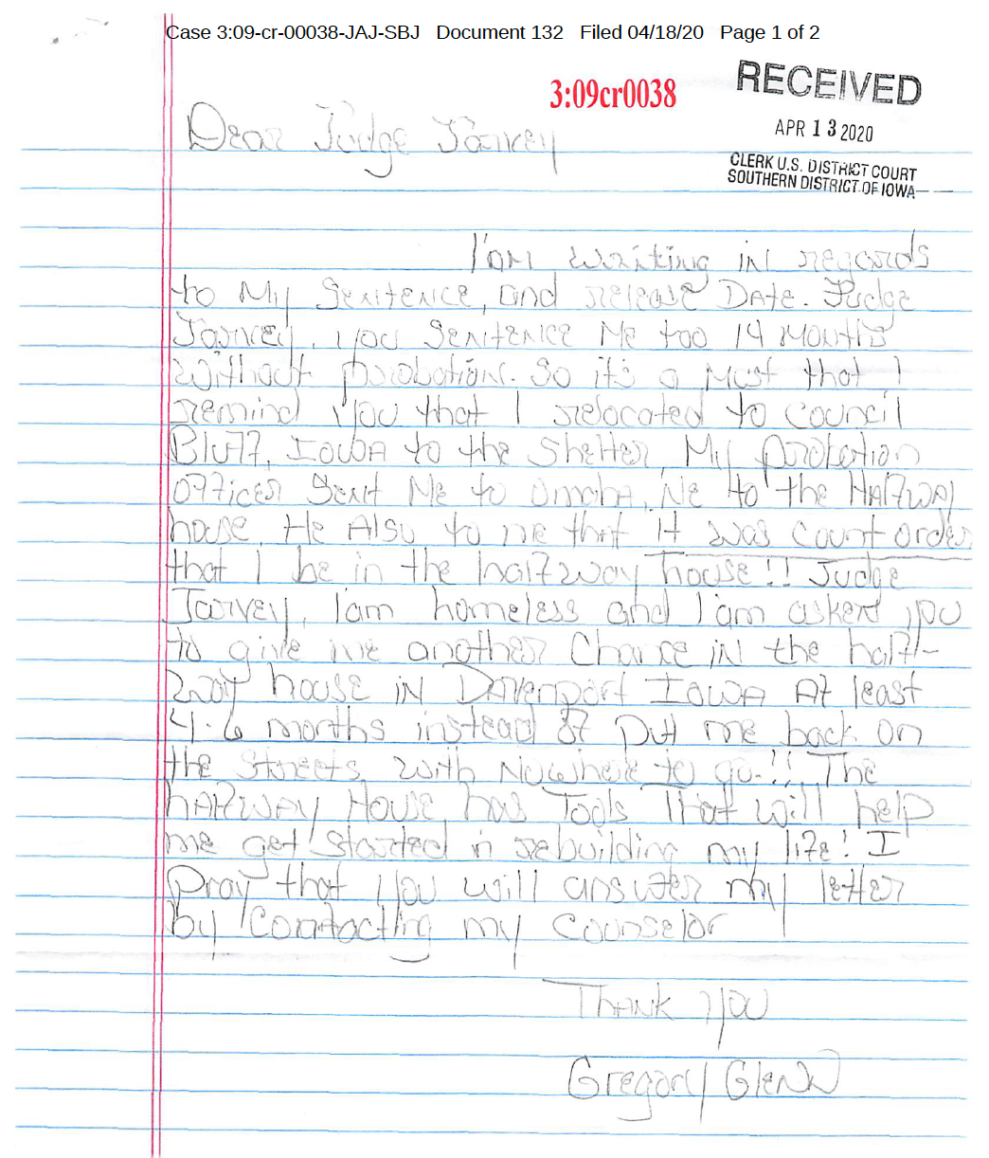 Case 3:09-cr-00038-JAJ-SBJ Document 132 Filed 04/18/20 Page 1 of 2
3:09cr0038
RECEIVED
APR 13 2020
CLERK U.S. DISTRICT COURT
SOUTHERN DISTRICT OF IOWA
Dear Judge Jarvey
I'am writing in regards
to My Sentence, and release Date. Judge
Jarvey, you Sentence Me too 14 Months
Without probation. So it's a Must that I
remind you that I relocated to Council
Bluff, Iowa to the Shelter, My probation
officer Sent Me to Omaha, Ne to the Halfway
house. He Also to me that it was Court order
that I be in the halfway house!! Judge
Jarvey, I'am homeless and I'am asken you
to give me another Chance in the half-
way house in Davenport Iowa At least
4-6 months instead of put me back on
the Streets, with Nowhere to go.!! The
halfway House has Tools That will help
me get Started in rebuilding my life! I
Pray that you will answer my letter
by Contacting my Counselor
Thank you
Gregory Glenn